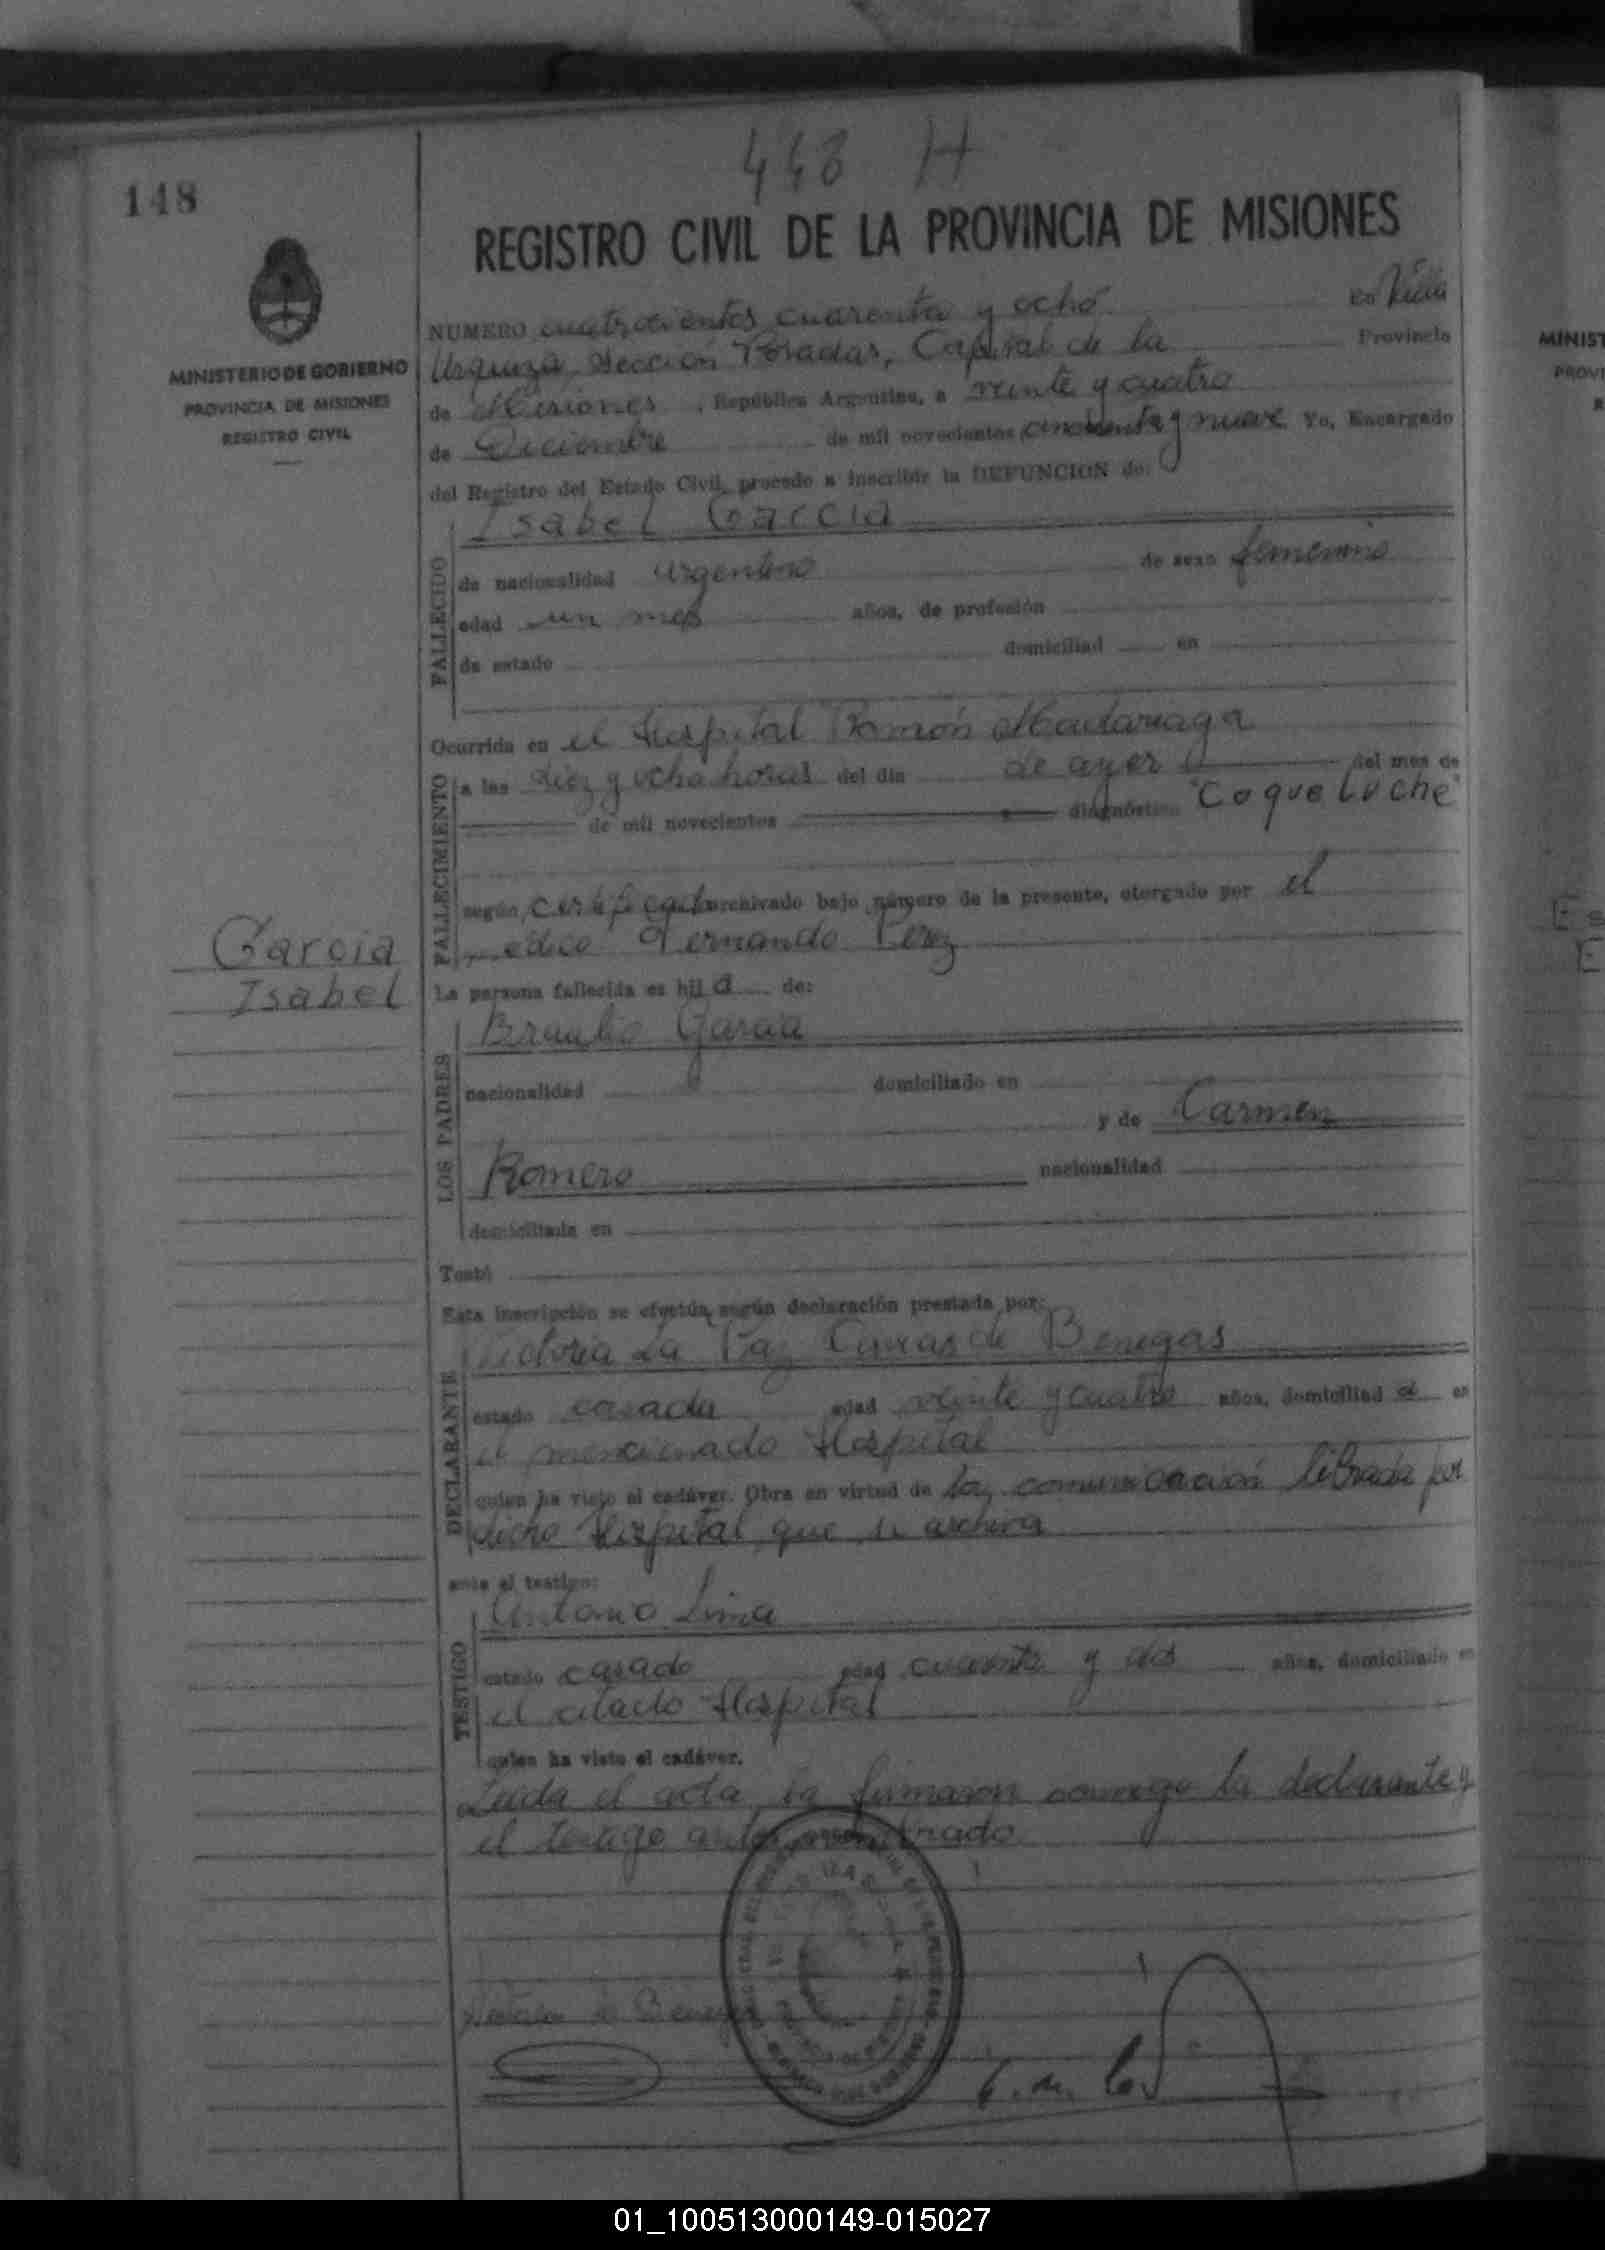 448 H
148
REGISTRO CIVIL DE LA PROVINCIA DE MISIONES
MINISTERIO DE GOBIERNO
PROVINCIA DE MISIONES
REGISTRO CIVIL
NUMERO cuatrocientos cuarenta y ocho En Villa
Urquiza, Sección Posadas, Capital de la Provincia
de Misiones, República Argentina, a veinte y cuatro
de Diciembre de mil novecientos cincuenta y nueve Yo, Encargado
del Registro del Estado Civil, procedo a inscribir la DEFUNCION de:
Isabel Garcia
FALLECIDO
de nacionalidad argentino de sexo femenino
edad un mes años, de profesión
de estado domiciliad en
Ocurrida en el Hospital Ramón Madariaga
FALLECIMIENTO
a las diez y ocho horas del día de ayer del mes de
de mil novecientos diagnóstico "Coqueluche"
según certificado archivado bajo número de la presente, otorgado por el
médico Fernando Perez
Garcia
Isabel
La persona fallecida es hij a de:
LOS PADRES
Braulio Garcia
nacionalidad domiciliado en
y de Carmen
Romero nacionalidad
domiciliada en
Testó
Esta inscripción se efectúa según declaración prestada por:
DECLARANTE
Victoria La Paz de Benegas
estado casada edad veinte y cuatro años, domiciliad a en
el mencionado Hospital
quien ha visto el cadáver. Obra en virtud de la comunicación librada por
dicho Hospital que se archiva
ante el testigo:
TESTIGO
Antonio Lima
estado casado edad cuarenta y dos años, domiciliado en
el citado Hospital
quien ha visto el cadáver.
Leida el acta la firmaron conmigo la declarante y
el testigo antes nombrado
01_100513000149-015027